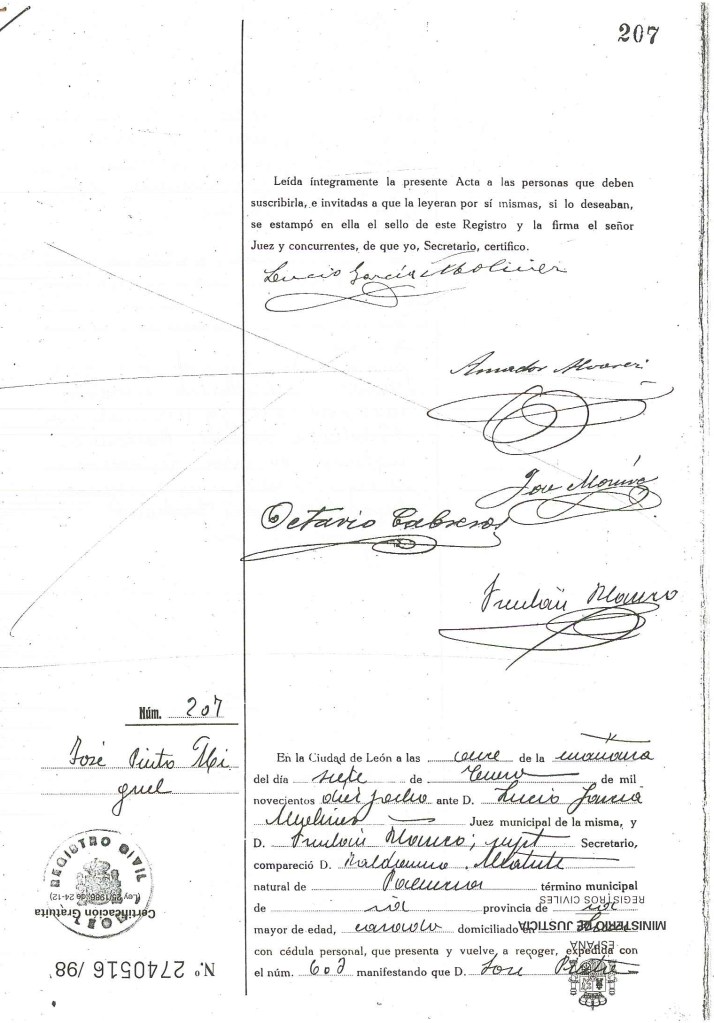 207
Leída íntegramente la presente Acta a las personas que deben
suscribirla, e invitadas a que la leyeran por sí mismas, si lo deseaban,
se estampó en ella el sello de este Registro y la firma el señor
Juez y concurrentes, de que yo, Secretario, certifico.
Lucio García Moliner
Amador Alvarez
Octavio Cabreros
Froilán Blanco
Núm. 207
José Pinto Mi
guel
En la Ciudad de León a las once de la mañana
del día siete de Enero de mil
novecientos diez y ocho ante D. Lucio García
Juez municipal de la misma, y
D. Froilán Blanco, Secretario,
compareció D.
natural de Palencia término municipal
de id provincia de id
mayor de edad, casado domiciliado en
con cédula personal, que presenta y vuelve, a recoger, expedida con
el núm. 603 manifestando que D. José
REGISTRO CIVIL
LEON
(Ley 25/1986 de 24-12)
Certificación Gratuita
N.º 2740516 / 98
REGISTROS CIVILES
MINISTERIO DE JUSTICIA
ESPAÑA